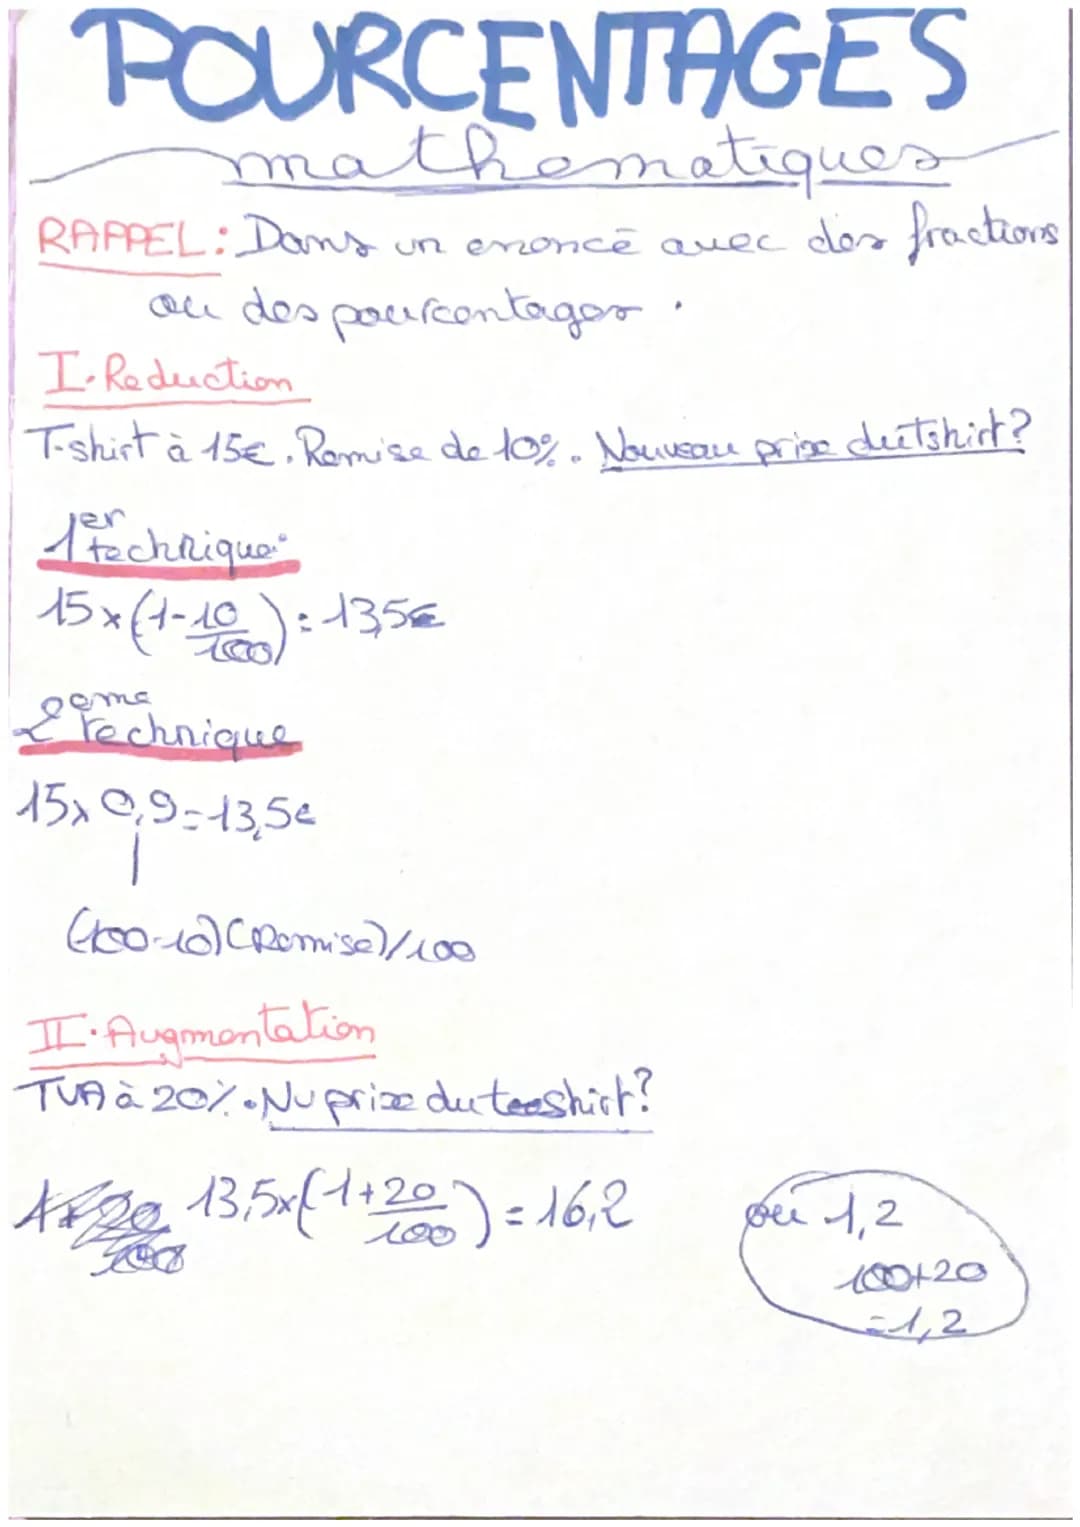 POURCENTAGES
mathematiques
RAPPEL: Dans un enoncé avec des fractions
ou des pourcentages.
I. Reduction
T-shirt à 15€. Remise de 10%. Nouveau prix du tshirt?
1er technique:
15x(1-10/100) = 13,5€
2eme technique
15x 0,9=13,5€
(100-10)(Remise)/100
II. Augmentation
TVA à 20%. Nu prix du teeshirt?
13,5x(1+20/100) = 16,2
ou 1,2
100+20
=1,2